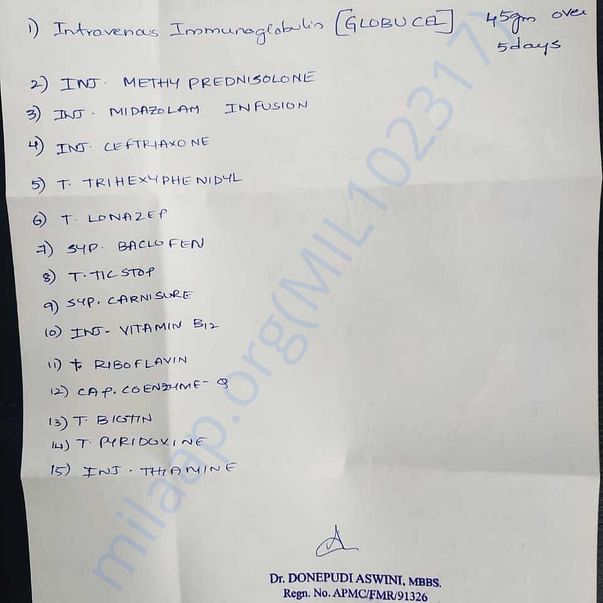 1) Intravenous Immunoglobulin [GLOBUCEL] 45gm over
5days
2) INJ. METHY PREDNISOLONE
3) INJ. MIDAZOLAM INFUSION
4) INJ. CEFTRIAXONE
5) T. TRIHEXYPHENIDYL
6) T. LONAZEP
7) SYP. BACLOFEN
8) T. TIC STOP
9) SYP. CARNISURE
10) INJ- VITAMIN B12
11) t RIBOFLAVIN
12) CAP. COENZYME-Q
13) T. BIOTIN
14) T. PYRIDOXINE
15) INJ - THIAMINE
milaap.org(MIL102317)
Dr. DONEPUDI ASWINI, MBBS.
Regn. No. APMC/FMR/91326